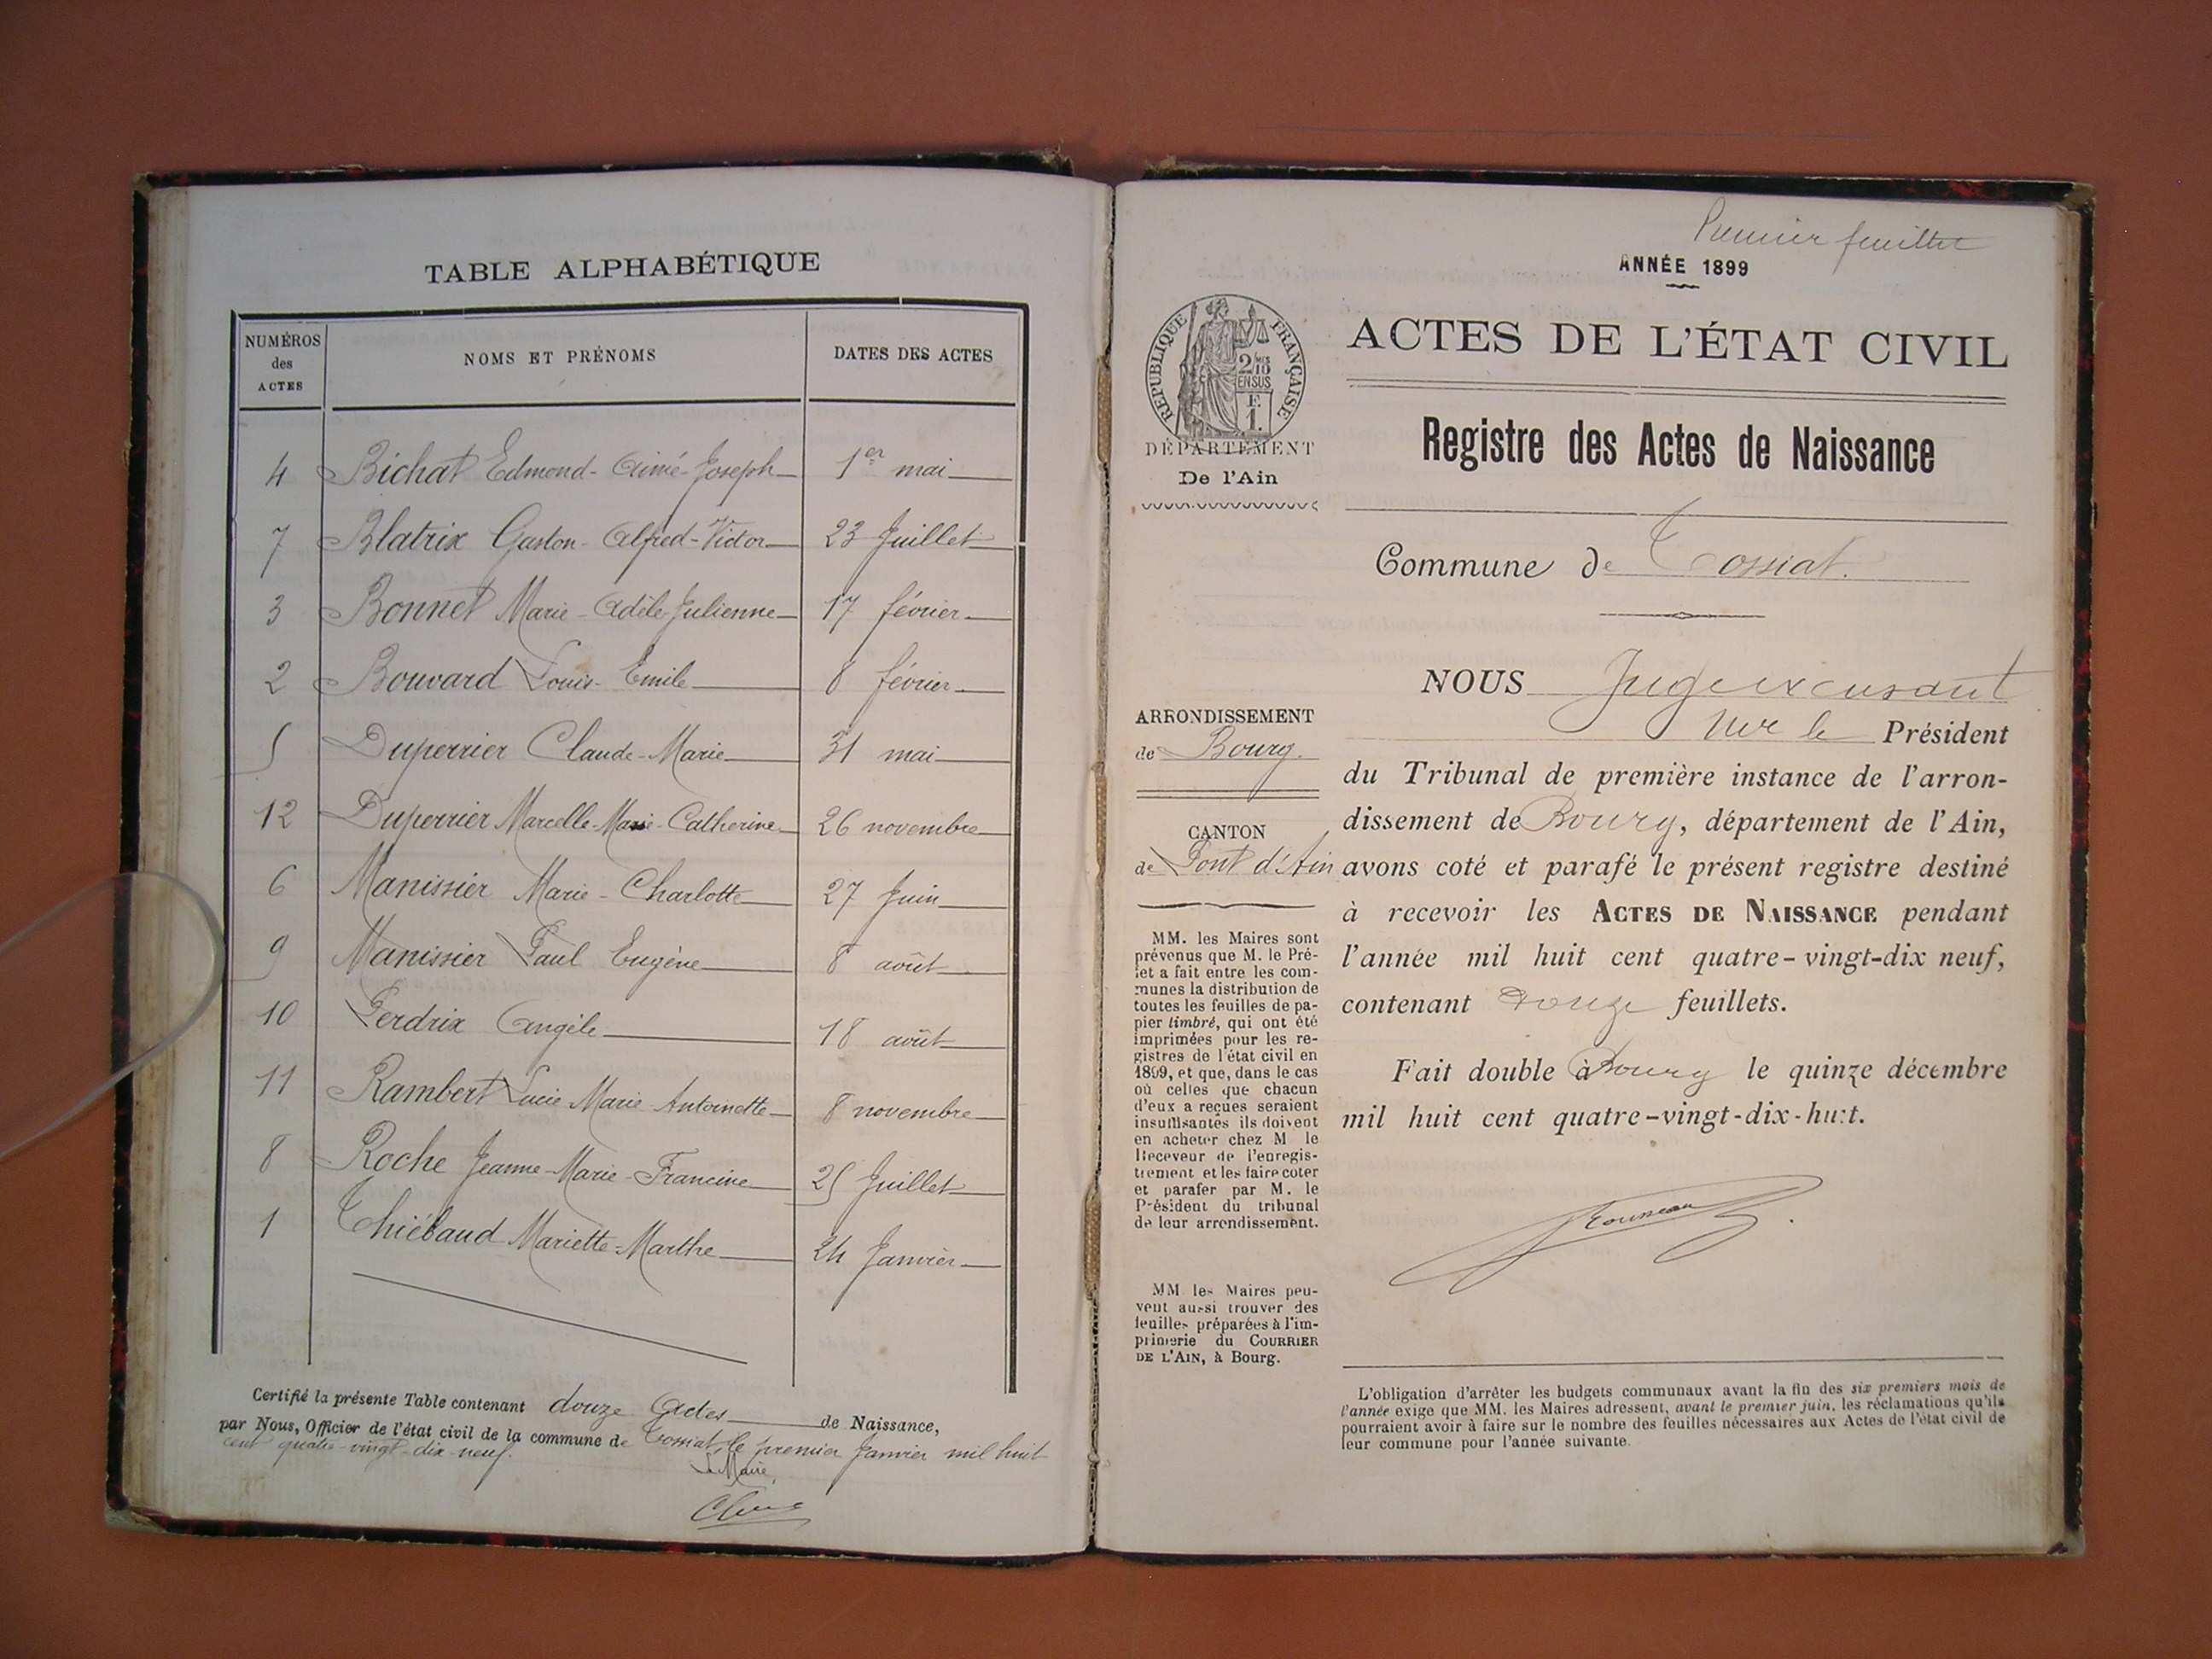 TABLE ALPHABÉTIQUE
NUMÉROS des ACTES NOMS ET PRÉNOMS DATES DES ACTES
4 Bichat Edmond-Aimé-Joseph 1er mai
7 Blatrix Gaston-Alfred-Victor 23 Juillet
3 Bonnet Marie-Adèle-Julienne 17 février
2 Bouvard Louis-Emile 8 février
5 Duperrier Claude-Marie 31 mai
12 Duperrier Marcelle-Marie-Catherine 26 novembre
6 Manissier Marie-Charlotte 27 Juin
9 Manissier Paul Eugène 8 août
10 Perdrix Angèle 18 août
11 Rambert Lucie Marie-Antoinette 8 novembre
8 Roche Jeanne-Marie-Francine 25 Juillet
1 Thiébaud Mariette-Marthe 24 Janvier
Certifié la présente Table contenant douze Actes de Naissance,
par Nous, Officier de l'état civil de la commune de Tossiat, le premier Janvier mil huit
cent quatre-vingt-dix-neuf.
Le Maire,
Premier feuillet
ANNÉE 1899
RÉPUBLIQUE FRANÇAISE
2/10 EN SUS
F.
1.
DÉPARTEMENT
De l'Ain
ACTES DE L'ÉTAT CIVIL
Registre des Actes de Naissance
Commune de Tossiat.
ARRONDISSEMENT
de Bourg.
CANTON
de Pont d'Ain
MM. les Maires sont
prévenus que M. le Pré-
fet a fait entre les com-
munes la distribution de
toutes les feuilles de pa-
pier timbré, qui ont été
imprimées pour les re-
gistres de l'état civil en
1899, et que, dans le cas
où celles que chacun
d'eux a reçues seraient
insuffisantes ils doivent
en acheter chez M le
Receveur de l'enregis-
trement et les faire coter
et parafer par M. le
Président du tribunal
de leur arrondissement.
MM les Maires peu-
vent aussi trouver des
feuilles préparées à l'im-
primerie du COURRIER
DE L'AIN, à Bourg.
NOUS Juge excusant
Mr le Président
du Tribunal de première instance de l'arron-
dissement de Bourg, département de l'Ain,
avons coté et parafé le présent registre destiné
à recevoir les ACTES DE NAISSANCE pendant
l'année mil huit cent quatre-vingt-dix neuf,
contenant douze feuillets.
Fait double à Bourg le quinze décembre
mil huit cent quatre-vingt-dix-huit.
L'obligation d'arrêter les budgets communaux avant la fin des six premiers mois de
l'année exige que MM. les Maires adressent, avant le premier juin, les réclamations qu'ils
pourraient avoir à faire sur le nombre des feuilles nécessaires aux Actes de l'état civil de
leur commune pour l'année suivante.